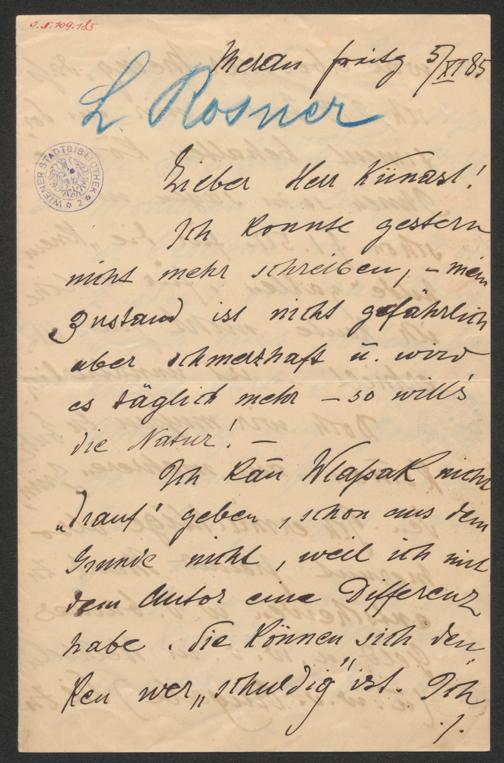 J.N. 109.185
Meran freitg 5/XI 85
L. Rosner
WIENER STADTBIBLIOTHEK
* 2 *
Lieber Herr Künast!
Ich konnte gestern
nicht mehr schreiben, – mein
Zustand ist nicht gefährlich
aber schmerzhaft u. wird
es täglich mehr – so will's
die Natur! –
Ich kan̄ Wlassak nicht
„drauf" geben, schon aus dem
Grunde nicht, weil ich mit
dem Autor eine Differenz
habe. Sie können sich den
ken wer „schuldig" ist. Ich
./.